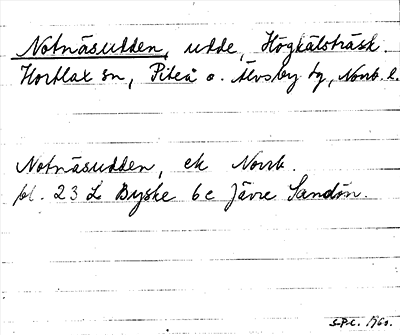 Notnäsudden, udde, Högkälsträsk.
Hortlax sn, Piteå o. Älvsby tg, Norrb. l.
Notnäsudden, ek Norrb.
bl. 23 L Byske 6c Jävre Sandön.
S.P.C. 1960.